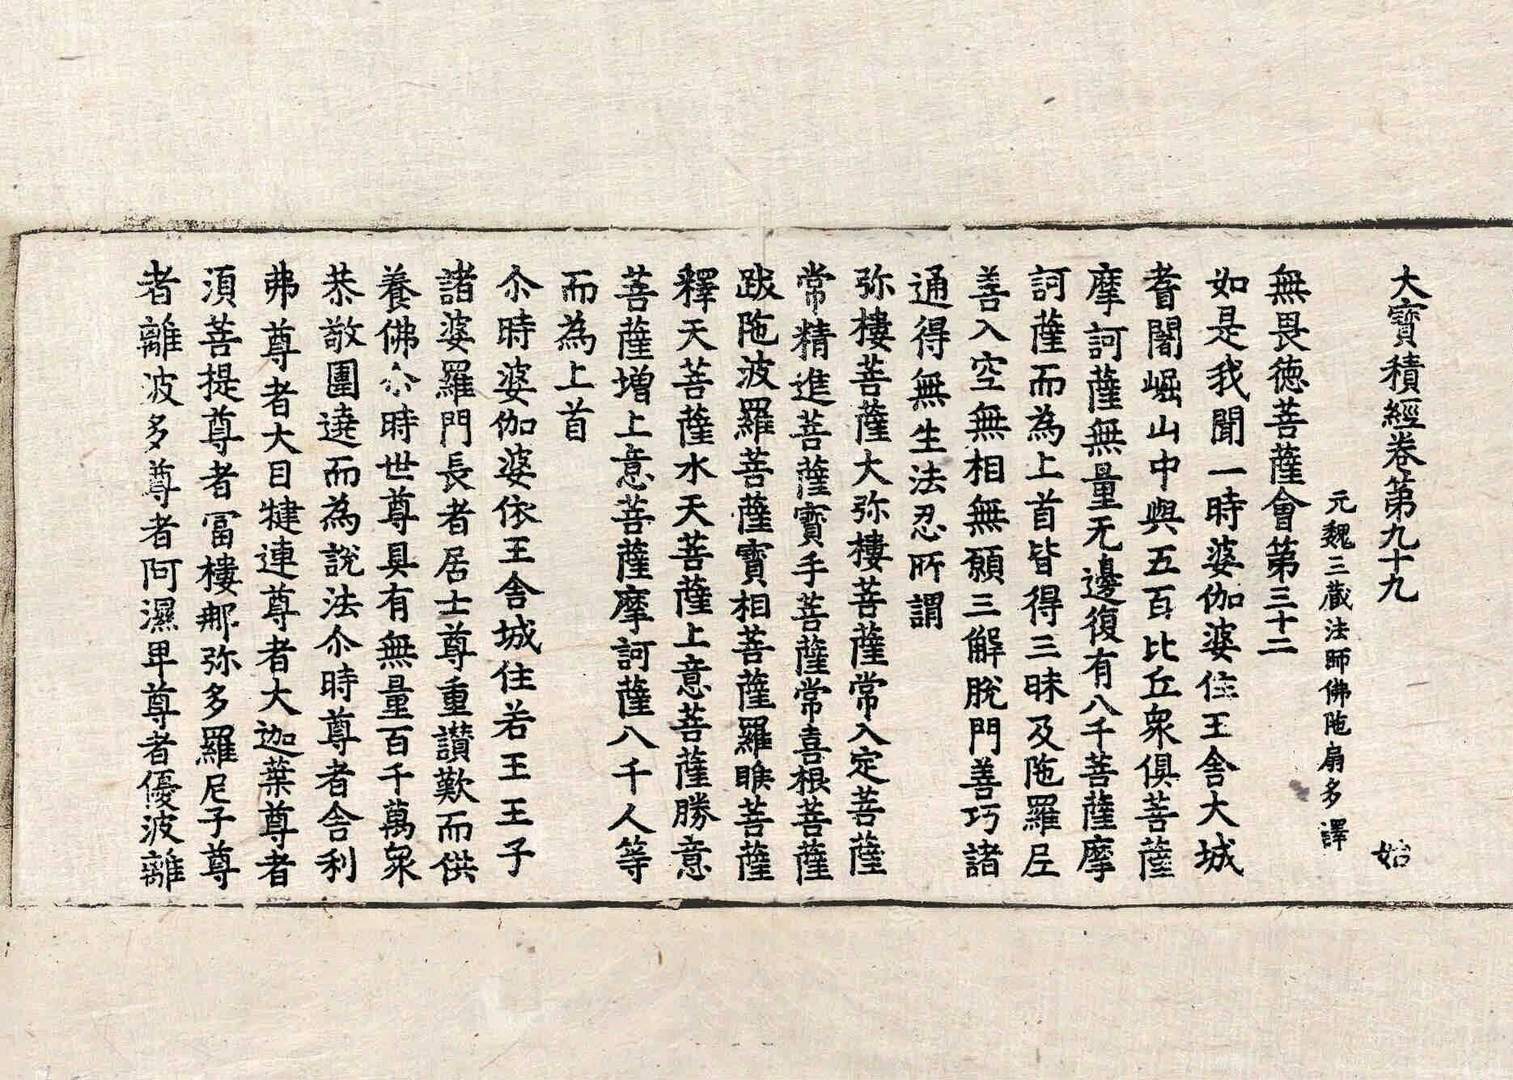 大寶積經卷第九十九 始
元魏三藏法師佛陁扇多譯
無畏德菩薩會第三十二
如是我聞一時婆伽婆住王舍大城
耆闍崛山中與五百比丘衆俱菩薩
摩訶薩無量无邊復有八千菩薩摩
訶薩而為上首皆得三昧及陁羅尼
善入空無相無願三解脫門善巧諸
通得無生法忍所謂
弥樓菩薩大弥樓菩薩常入定菩薩
常精進菩薩寶手菩薩常喜根菩薩
跋陁波羅菩薩寶相菩薩羅睺菩薩
釋天菩薩水天菩薩上意菩薩勝意
菩薩增上意菩薩摩訶薩八千人等
而為上首
尒時婆伽婆依王舍城住若王王子
諸婆羅門長者居士尊重讃歎而供
養佛尒時世尊具有無量百千萬衆
恭敬圍遶而為說法尒時尊者舍利
弗尊者大目揵連尊者大迦葉尊者
湏菩提尊者冨樓那弥多羅尼子尊
者離波多尊者阿濕卑尊者優波離